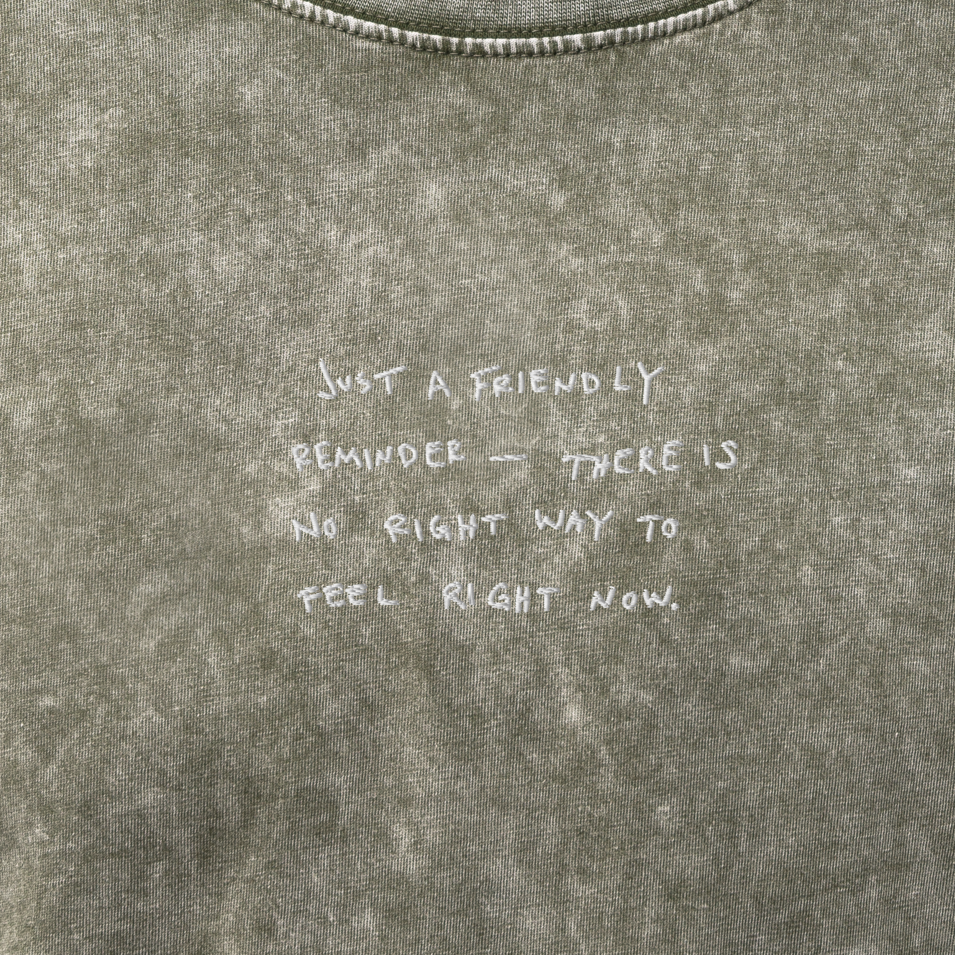 JUST A FRIENDLY
REMINDER — THERE IS
NO RIGHT WAY TO
FEEL RIGHT NOW.